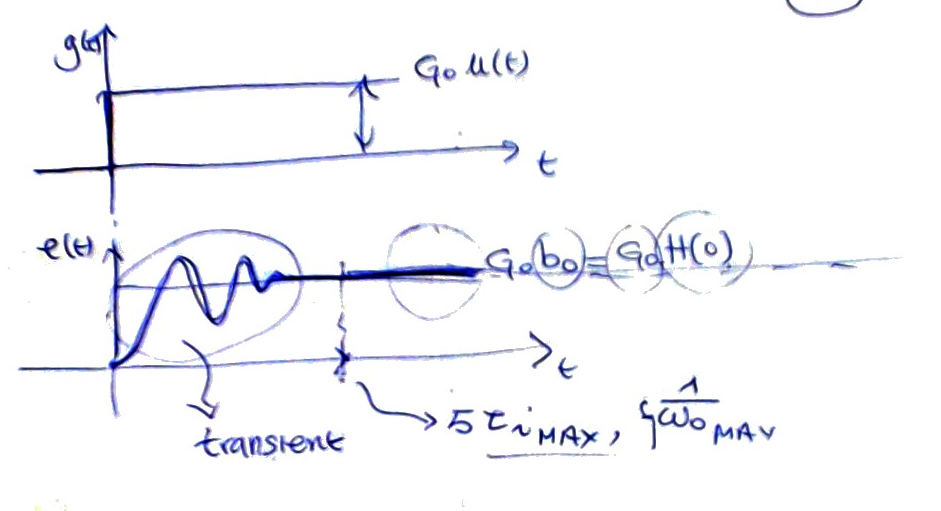 g(t)
G₀ u(t)
t
e(t)
G₀ b₀ = G₀ H(0)
t
transient
5 τi MAX, 1/ζω₀ MAX